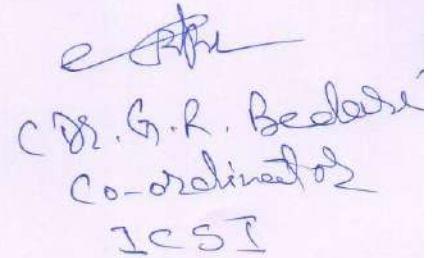 (Dr. G. R. Bedare
Co-ordinator
ICSI